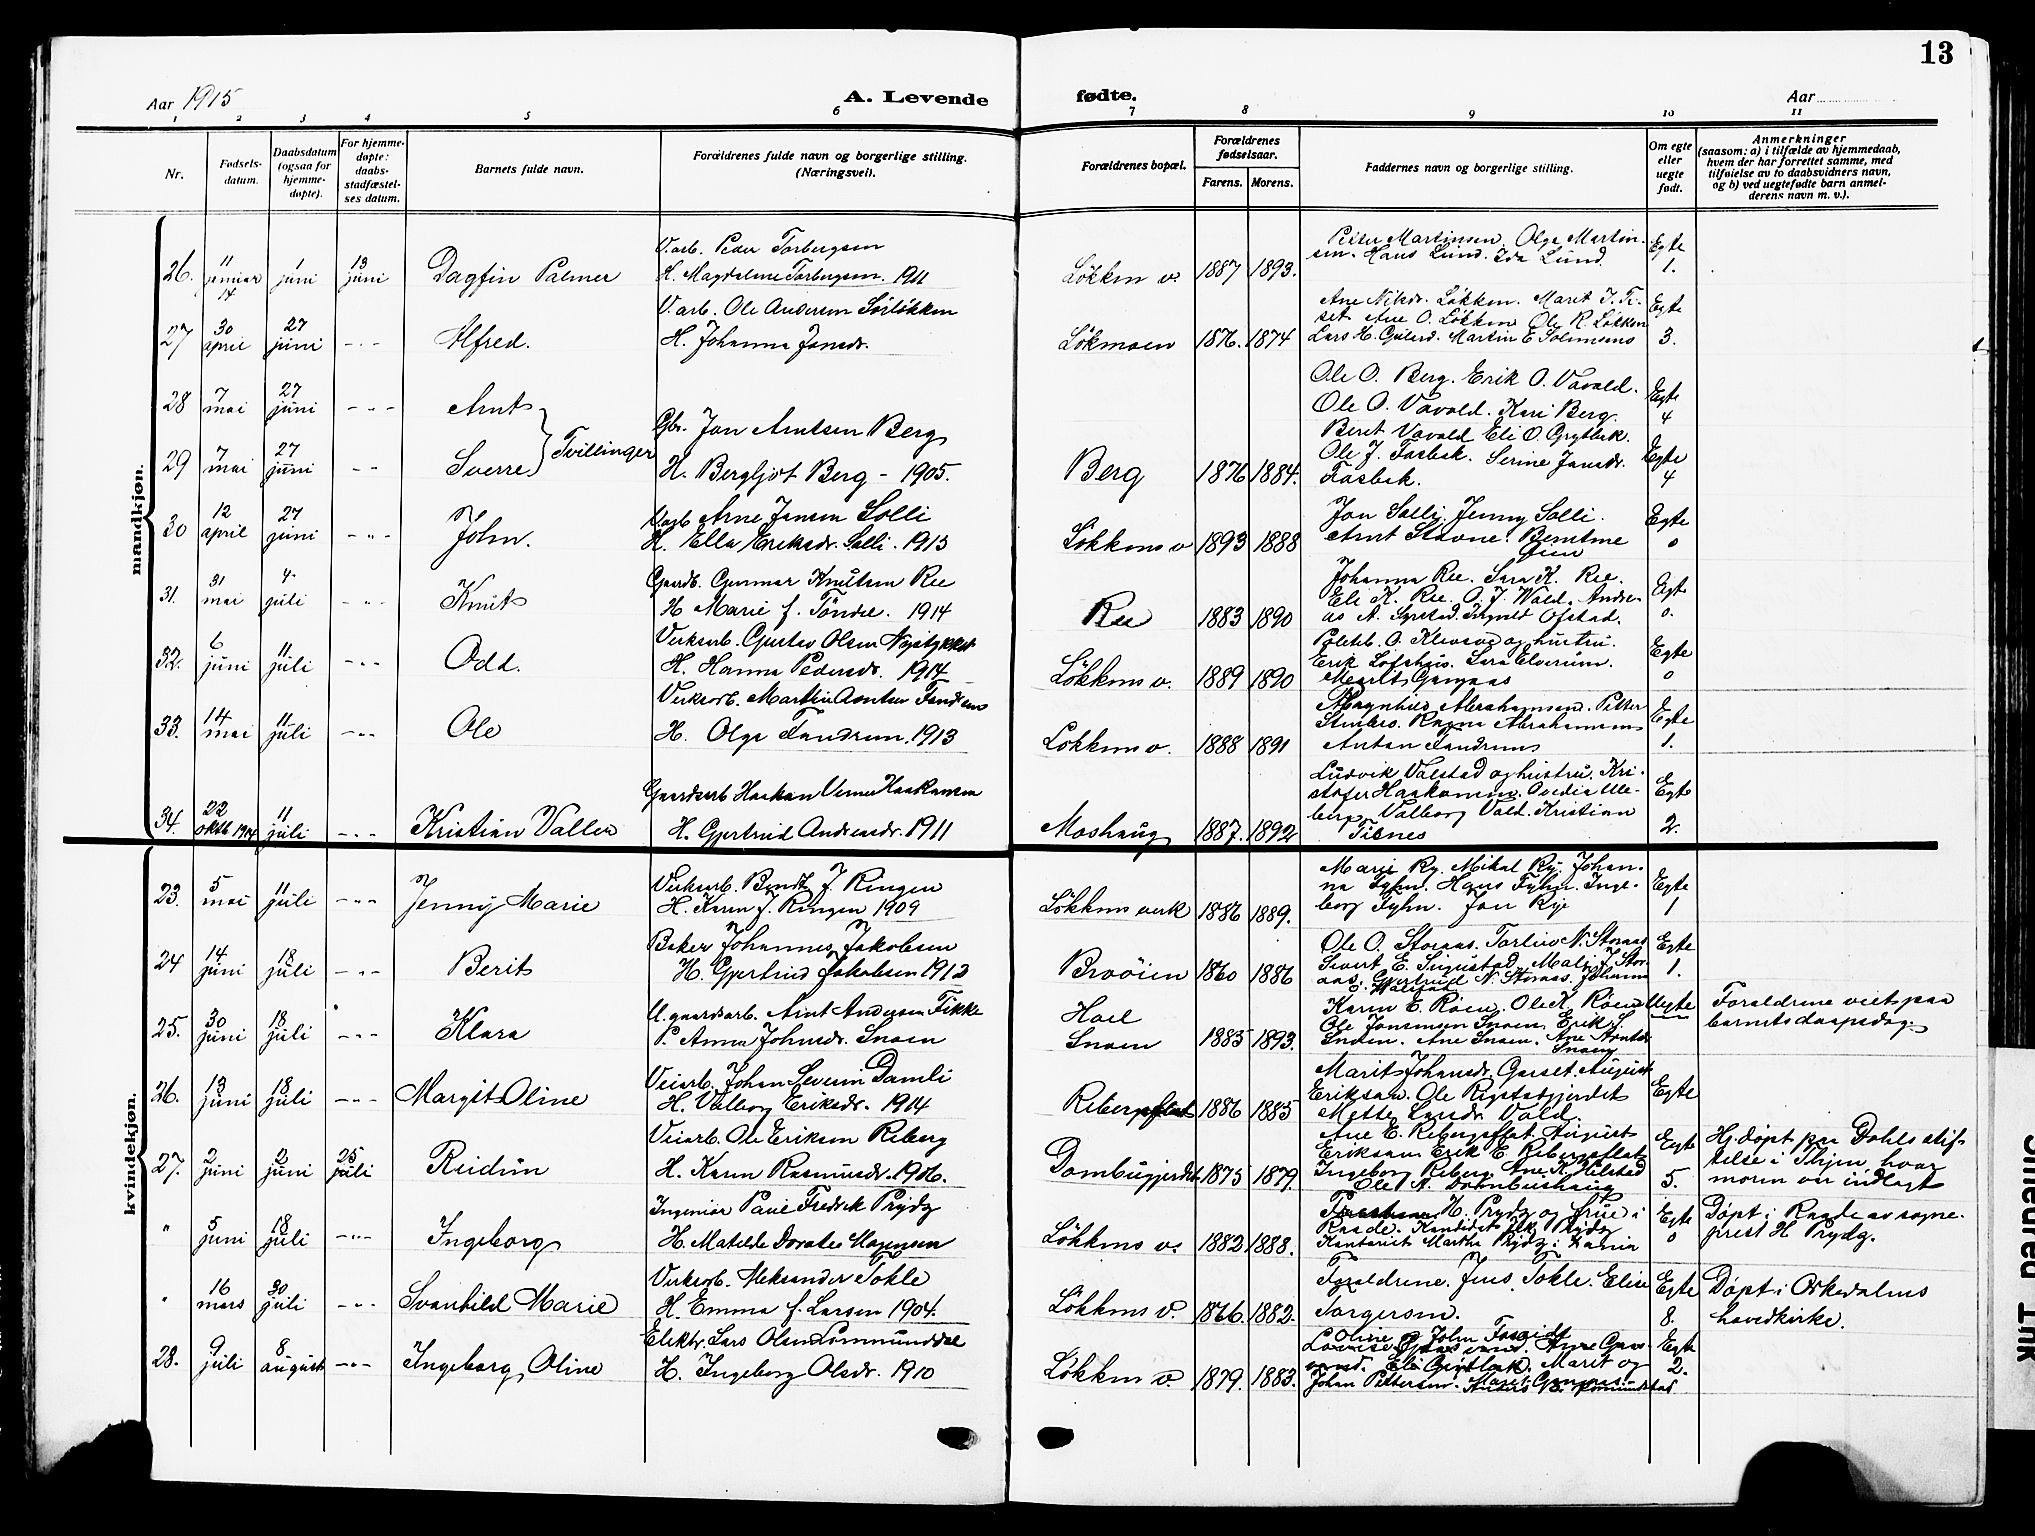 13
Aar 1915
A. Levende fødte.
Aar
1 2 3 4 5 6 7 8 9 10 11
Nr.
Fødsels-
datum.
Daabsdatum
(ogsaa for
hjemme-
døpte).
For hjemme-
døpte:
daabs-
stadfæstel-
ses datum.
Barnets fulde navn.
Forældrenes fulde navn og borgerlige stilling.
(Næringsvei).
Forældrenes bopæl.
Forældrenes
fødselsaar.
Farens. Morens.
Faddernes navn og borgerlige stilling.
Om egte
eller
uegte
født.
Anmerkninger
(saasom: a) i tilfælde av hjemmedaab,
hvem der har forrettet samme, med
tilføielse av to daabsvidners navn,
og b) ved uegtefødte barn anmel-
derens navn m. v.).
mandkjøn.
26. 11 januar 14 1 juni 13 juni Dagfin Palmer
V.arb. Peder Torbergsen
H. Magdalene Torbergsen. 1911
Løkken v. 1887 1893.
Petter Martinsen. Olga Martin-
sen. Hans Lund. Ida Lund.
Egte 1.
27 30 april 27 juni - " - Alfred.
V.arb. Ole Andersen Sørløkken
H. Johanna Jansdr.
Løkmoen 1876. 1874
Ane Nilsdr. Løkken. Marit J.
Ane O. Løkken Ole R. Løkken
Lars H. Martin E.
Egte 3.
28 7 mai 27 juni - " - Arnt
29 7 mai 27 juni - " - Sverre
Tvillinger
Gbr. Jon Arntsen Berg
H. Bergljot Berg - 1905.
Berg 1876 1884.
Ole O. Berg. Erik O. Vavald.
Ole O. Vavald. Kari Berg.
Egte 4
Beret Vavald Eli O. Grytbak.
Ole J. Fasbek. Serine Jansdr.
Fasbek.
Egte 4
30 12 april 27 juni - " - John.
V.arb Arne Jansen Solli
H. Ella Eriksdr. Solli. 1913
Løkkens v 1893 1888
Jon Solli. Jenny Solli.
Arnt Stavne.
Egte 0
31. 31 mai 4. juli - " - Knut
Gaardb. Gunnar Knutsen Ree
H Marie f. Tøndel. 1914
Ree 1883 1890
Johanna Ree. Sara K. Ree.
Eli K. Ree. O. J. Wold. Andre-
as A. Ofstad.
Egt 0.
32. 6 juni 11 juli - " - Odd.
Verksarb. Gustav Olsen Nystykket
H. Hanna Pedersdr. 1914
Løkkens v. 1889 1890
O. Klevsve og hustru.
Erik Lofshus. Sara Elverum.
Egte 0
33. 14 mai 11 juli - " - Ole
Verksarb. Martin Arntsen Fandrem
H. Olga Fandrem. 1913
Løkkens v. 1888 1891
Abrahamsen. Petter
Ragna Abrahamsen
Anton Fandrem
Egte 1.
34. 22 oktb 1914 11 juli - " - Kristian Valler
Gaardsarb Haakan Verner Haakansen
H. Gjertrud Andreasdr. 1911
Moshaug 1887. 1892
Ludvik Valstad og hustru. Kri-
stofer Haakansen.
Valborg Vold. Kristian
Egte 2.
kvindekjøn.
23. 5 mai 11 juli - " - Jenny Marie
Verksarb. Bendt J. Ringen
H. Karen J. Ringen 1909
Løkkens verk 1886 1889.
Marie Ry. Mikal Ry. Johan-
na Fyhn. Hans Fyhn. Inge-
borg Fyhn. Jon Rye
Egte 1
24 14 juni 18 juli - " - Berit
Baker Johannes Jakobsen
H. Gjertrud Jakobsen 1912
Broöien 1860 1886
Ole O. Storaas. Torleiv N. Storaas
Sivert E. Sugustad. Mali J. Stor-
aas. Gjertrud N. Storaas. Johanna
Egte 1.
25. 30 juni 18 juli - " - Klara
U. gaardsarb. Arnt Andersen Fikke
P. Anna Johnsdr. Snoen
Hoel
Snoen 1885 1893.
Karen E. Røen. Ole K. Røen
Ole Jonsensen Snoen. Erik S.
Ane Snoen. Ane Arntsdr
Snoen
Uegte
Forældrene viet paa
barnets daapsdag.
26. 13 juni 18 juli - " - Margit Oline
Veiarb. Johan Severin Damli
H. Valborg Eriksdr. 1914
Rebergsflat 1886 1885
Marit Johansdr. Garset. August
Eriksen. Ole Rigstadgjerdet
Mette Larsdr. Vold.
Egte
27. 2 juni 2 juni 25 juli Reidun
Veiarb. Ole Eriksen Reberg
H. Karen Rasmusdr. 1906.
Dombugjerdet 1875 1879.
Ane E. Rebergsflat. August
Eriksen. Erik E. Rebergsflat
Ingeborg Reberg. Ane K. Helstad
Ole A. Dombushaug
Egte 5.
Hj. døpt paa Dahls stif-
telse i Thjem, hvor
moren var indlagt
" 5 juni 18 juli - " - Ingeborg
Ingeniør Paul Fredrik Prydz
H. Matilde Dorotea Mogensen
Løkkens v. 1882 1888.
H. Prydz og frue i
Raade. Kandidat Prydz
Martha Prydz i
Egte 0
Døpt i Raade av sogne-
prest H Prydz.
" 16 mars 30 juli - " - Svanhild Marie
Verksarb. Aleksander Tokle
H. Emma f. Larsen 1904.
Løkkens v. 1866. 1882.
Forældrene. Jens Tokle. Elise
Torgersen.
Egte 8.
Døpt i Orkedalens
hovedkirke.
28. 9 juli 8 august - " - Ingeborg Oline
Elektr. Lars Olsen Lommunddal
H. Ingeborg Olsdr. 1910
Løkken v. 1879. 1883.
Oline og John
Eli Grytbak. Marit og
Johan Pettersen.
Egte 2.